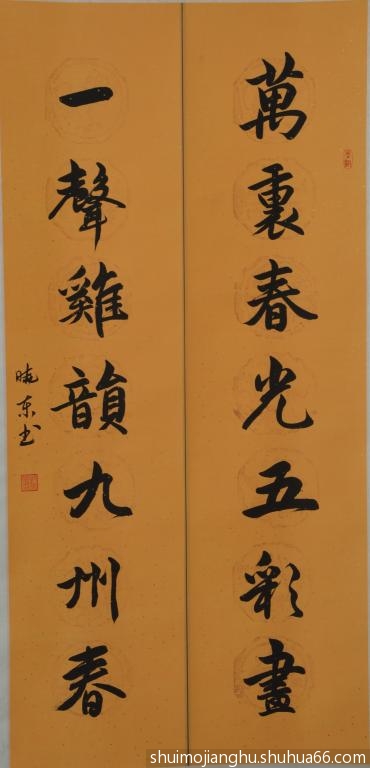 萬裏春光五彩畫
一聲雞韻九州春
晓东书
shuimojianghu.shuhua66.com